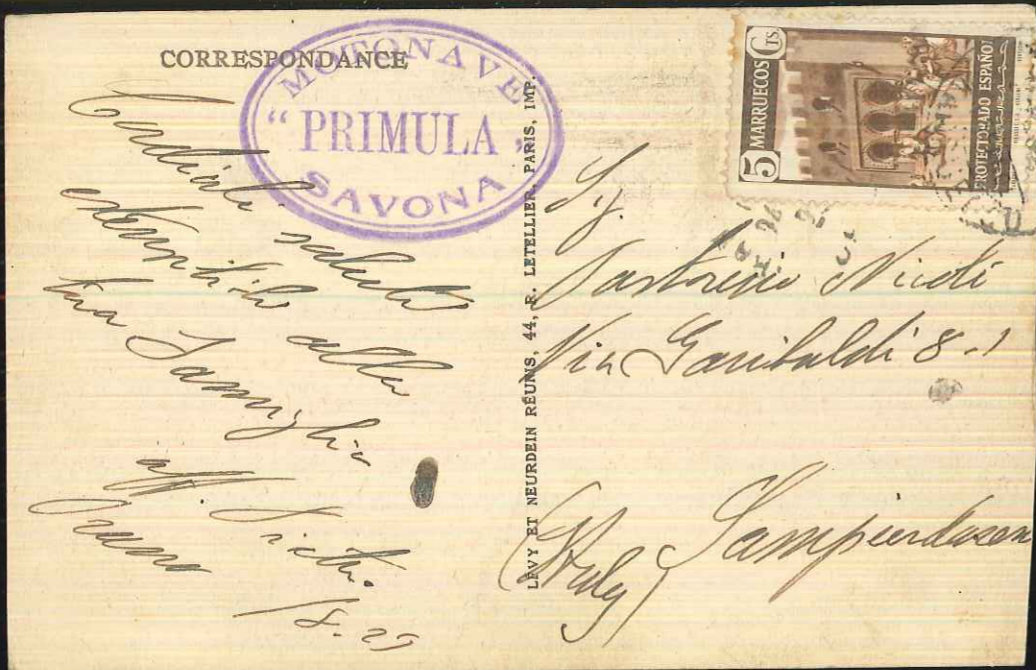 CORRESPONDANCE
MOTONAVE
"PRIMULA"
SAVONA
Cordiali saluti
estendibili alla
tua Famiglia
aff.
LÉVY ET NEURDEIN RÉUNIS, 44, R. LETELLIER, PARIS, IMP.
5 MARRUECOS CTS
PROTECTORADO ESPAÑOL
Sig.
Sartorio
Via Garibaldi 8-1
Sampierdarena
(Italy)